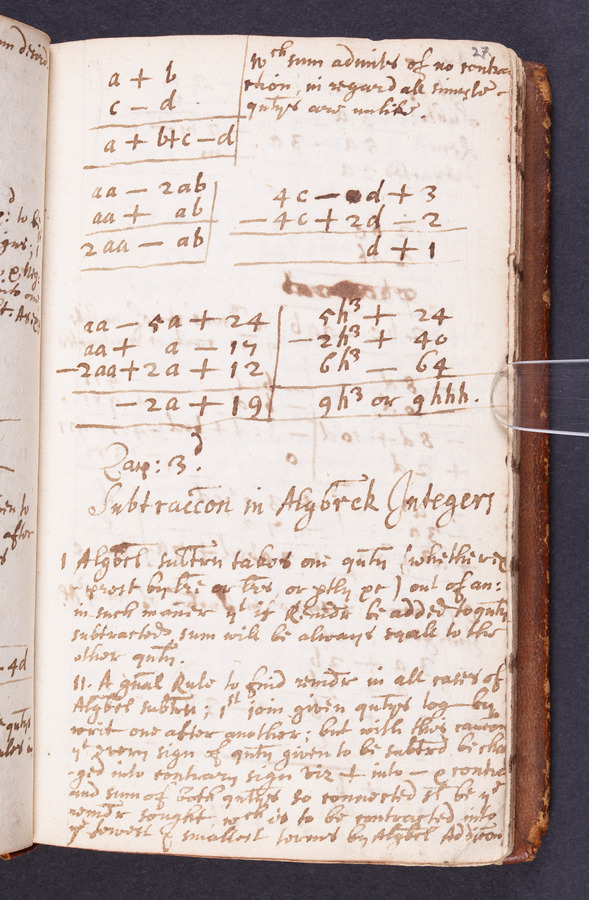 27
a + b
c - d
a + b + c - d
wch sum admits of no contra
ction, in regard all simple
qutys are unlike.
aa - 2ab
aa + ab
2aa - ab
4c - d + 3
- 4c + 2d - 2
d + 1
aa - 5a + 24
aa + a - 17
- 2aa + 2a + 12
- 2a + 19
5h³ + 24
- 2h³ + 40
6h³ - 64
9h³ or 9hhh.
Cap: 3d.
Subtraccon in Algbrek Integers
1 Algbel subtrn takes one quty (whether
exprest by lre or lres, or ptly ) out of an:
in such maner yt if Remdr be added to quty
subtracted, sum will be always equall to the
other quty.
11. A gnal Rule to find remdr in all cases of
Algbel subtrn; 1st joyn given qutys tog by
writ one after another: but with this caucon
yt every sign of quty given to be subtrd be cha
ged into contrary sign viz + into - & contra
and sum of both qutys so connected sl be ye
remdr sought, wch is to be contracted into
ye fewest & smallest termes by Algbel Addicon